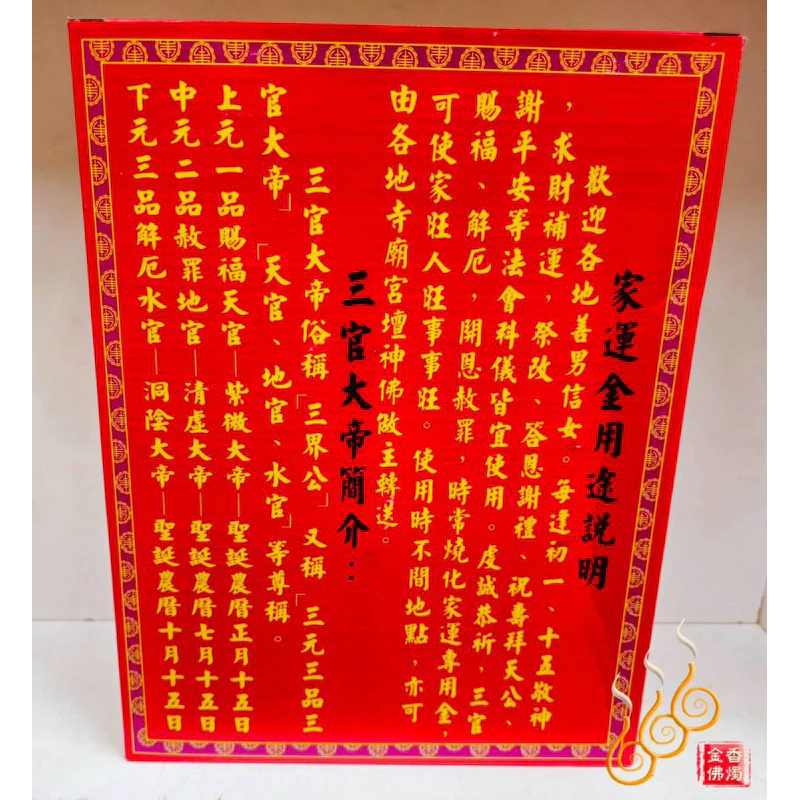 家運金用途説明
歡迎各地善男信女。每逢初一、十五敬神
，求財補運，祭改、答恩謝禮、祝壽拜天公、
謝平安等法會科儀皆宜使用。虔誠恭祈，三官
賜福、解厄，開恩赦罪，時常燒化家運專用金，
可使家旺人旺事事旺。使用時不問地點，亦可
由各地寺廟宮壇神佛做主轉送。
三官大帝簡介：
三官大帝俗稱「三界公」又稱「三元三品三
官大帝」「天官、地官、水官」等尊稱。
上元一品賜福天官—紫微大帝—聖誕農曆正月十五日
中元二品赦罪地官—清虛大帝—聖誕農曆七月十五日
下元三品解厄水官—洞陰大帝—聖誕農曆十月十五日
金佛
香燭